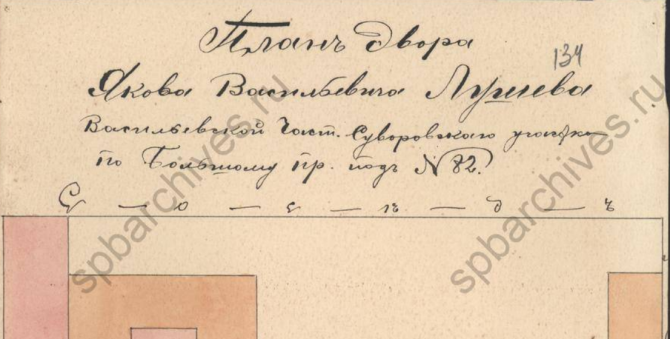 Планъ Двора
134
Якова Васильевича Лушева
Васильевской Част. Суворовскаго участка
по Большому пр. подъ № 82.
С — о — с — ѣ — д — ъ
spbarchives.ru
spbarchives.ru